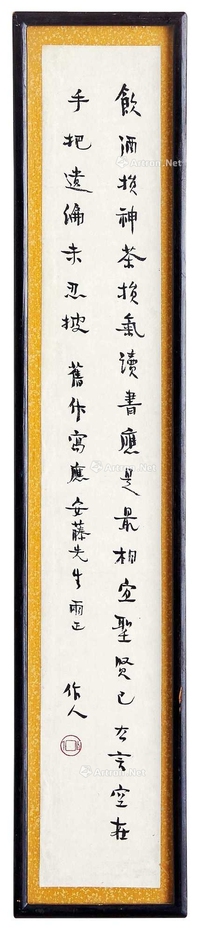 飲酒損神茶損氣讀書應是最相宜聖賢已死言空在
手把遺編未忍披 舊作寫應 安藤先生 正 作人
Artron.Net
Artron.Net
Artron.Net